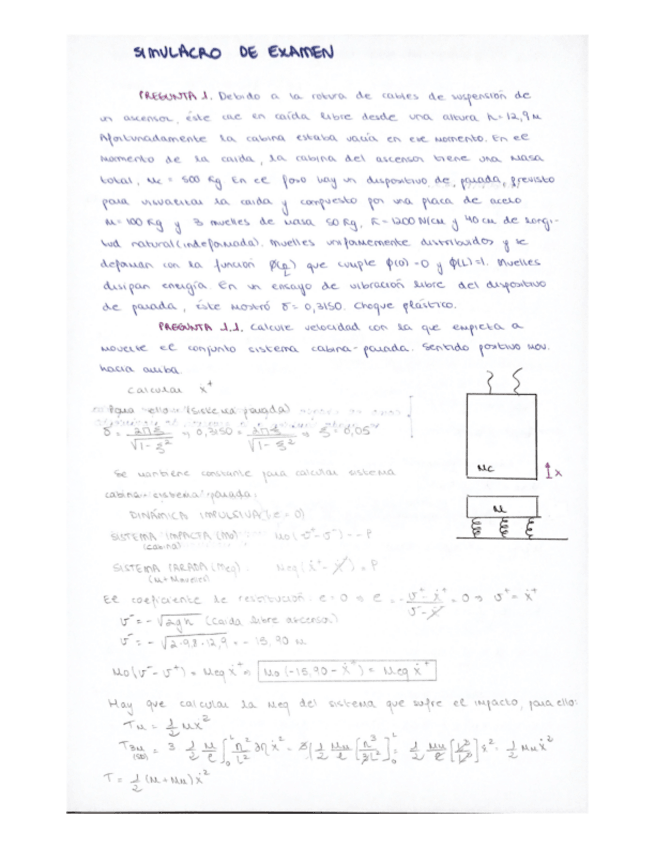 SIMULACRO DE EXAMEN
PREGUNTA 1. Debido a la rotura de cables de suspensión de
un ascensor, éste cae en caída libre desde una altura h = 12,9 m
Afortunadamente la cabina estaba vacía en ese momento. En el
momento de la caída, la cabina del ascensor tiene una masa
total, Mc = 500 kg En el foso hay un dispositivo de parada, previsto
para la caída y compuesto por una placa de acero
M = 100 kg y 3 muelles de masa 50 kg, K = 1200 N/cm y 40 cm de longi-
tud natural (indeformada). Muelles unifamemente distribuidos y se
deforman con la función que cumple φ(0) = 0 y φ(L) = 1. Muelles
disipan energía. En un ensayo de vibración libre del dispositivo
de parada, éste mostró δ = 0,3150. Choque plástico.
PREGUNTA 1.1. Calcule velocidad con la que empieza a
moverse el conjunto sistema cabina-parada. Sentido positivo mov.
hacia arriba.
Calcular ẋ⁺
Para ello (sistema parada)
δ = 2πξ / √(1-ξ²) → 0,3150 = 2πξ / √(1-ξ²) → ξ = 0,05
Mc
x
M
Se mantiene constante para calcular sistema
cabina-sistema parada:
DINÁMICA IMPULSIVA (e = 0)
SISTEMA IMPACTA (Mo) Mo (v⁺ - v⁻) = - P
(cabina)
SISTEMA PARADA (Meq) Meq (ẋ⁺ - ẋ⁻) = P
(M + Mmuelles)
El coeficiente de restitución: e = 0 → e = - (v⁺ - ẋ⁺) / (v⁻ - ẋ⁻) = 0 → v⁺ = ẋ⁺
v⁻ = - √2gh (caída libre ascensor)
v⁻ = - √2·9,8·12,9 = - 15,90 m
Mo (v⁻ - v⁺) = Meq ẋ⁺ → Mo (-15,90 - ẋ⁺) = Meq ẋ⁺
Hay que calcular la Meq del sistema que sufre el impacto, para ello:
T_M = 1/2 Mẋ²
T = 1/2 (M + Mm) ẋ²